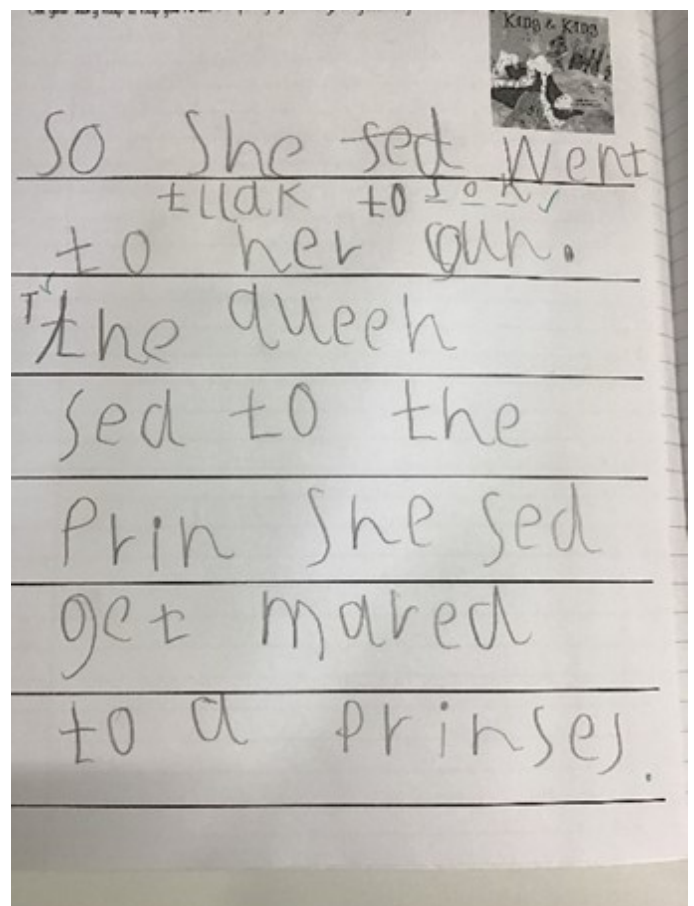 King & King
So She sed Went
tllak to sok ✓
to her oun.
T the queen
sed to the
Prin She sed
get mared
to a Prinses.